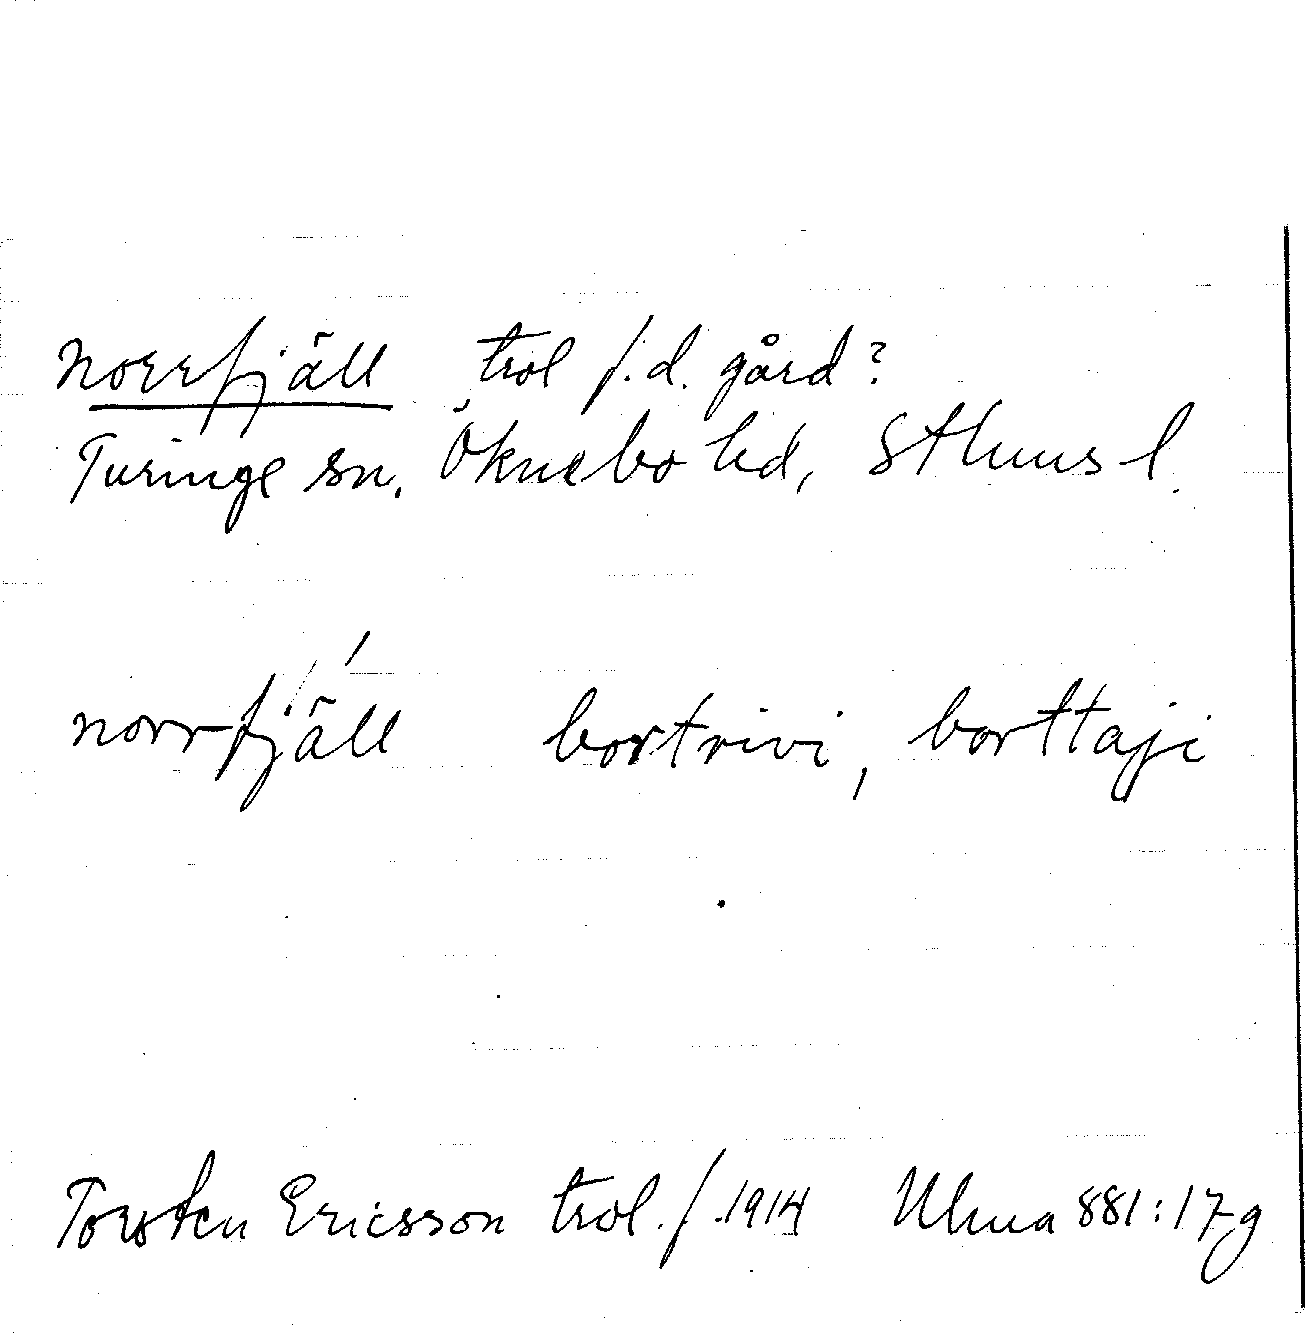 Norrfjäll trol f.d. gård?
Turinge sn. Öknebo hd, Sthlms l.
norrfjäll bortrivi, borttaji
Torsten Ericsson trol. f. 1914 Uluma 881:17g